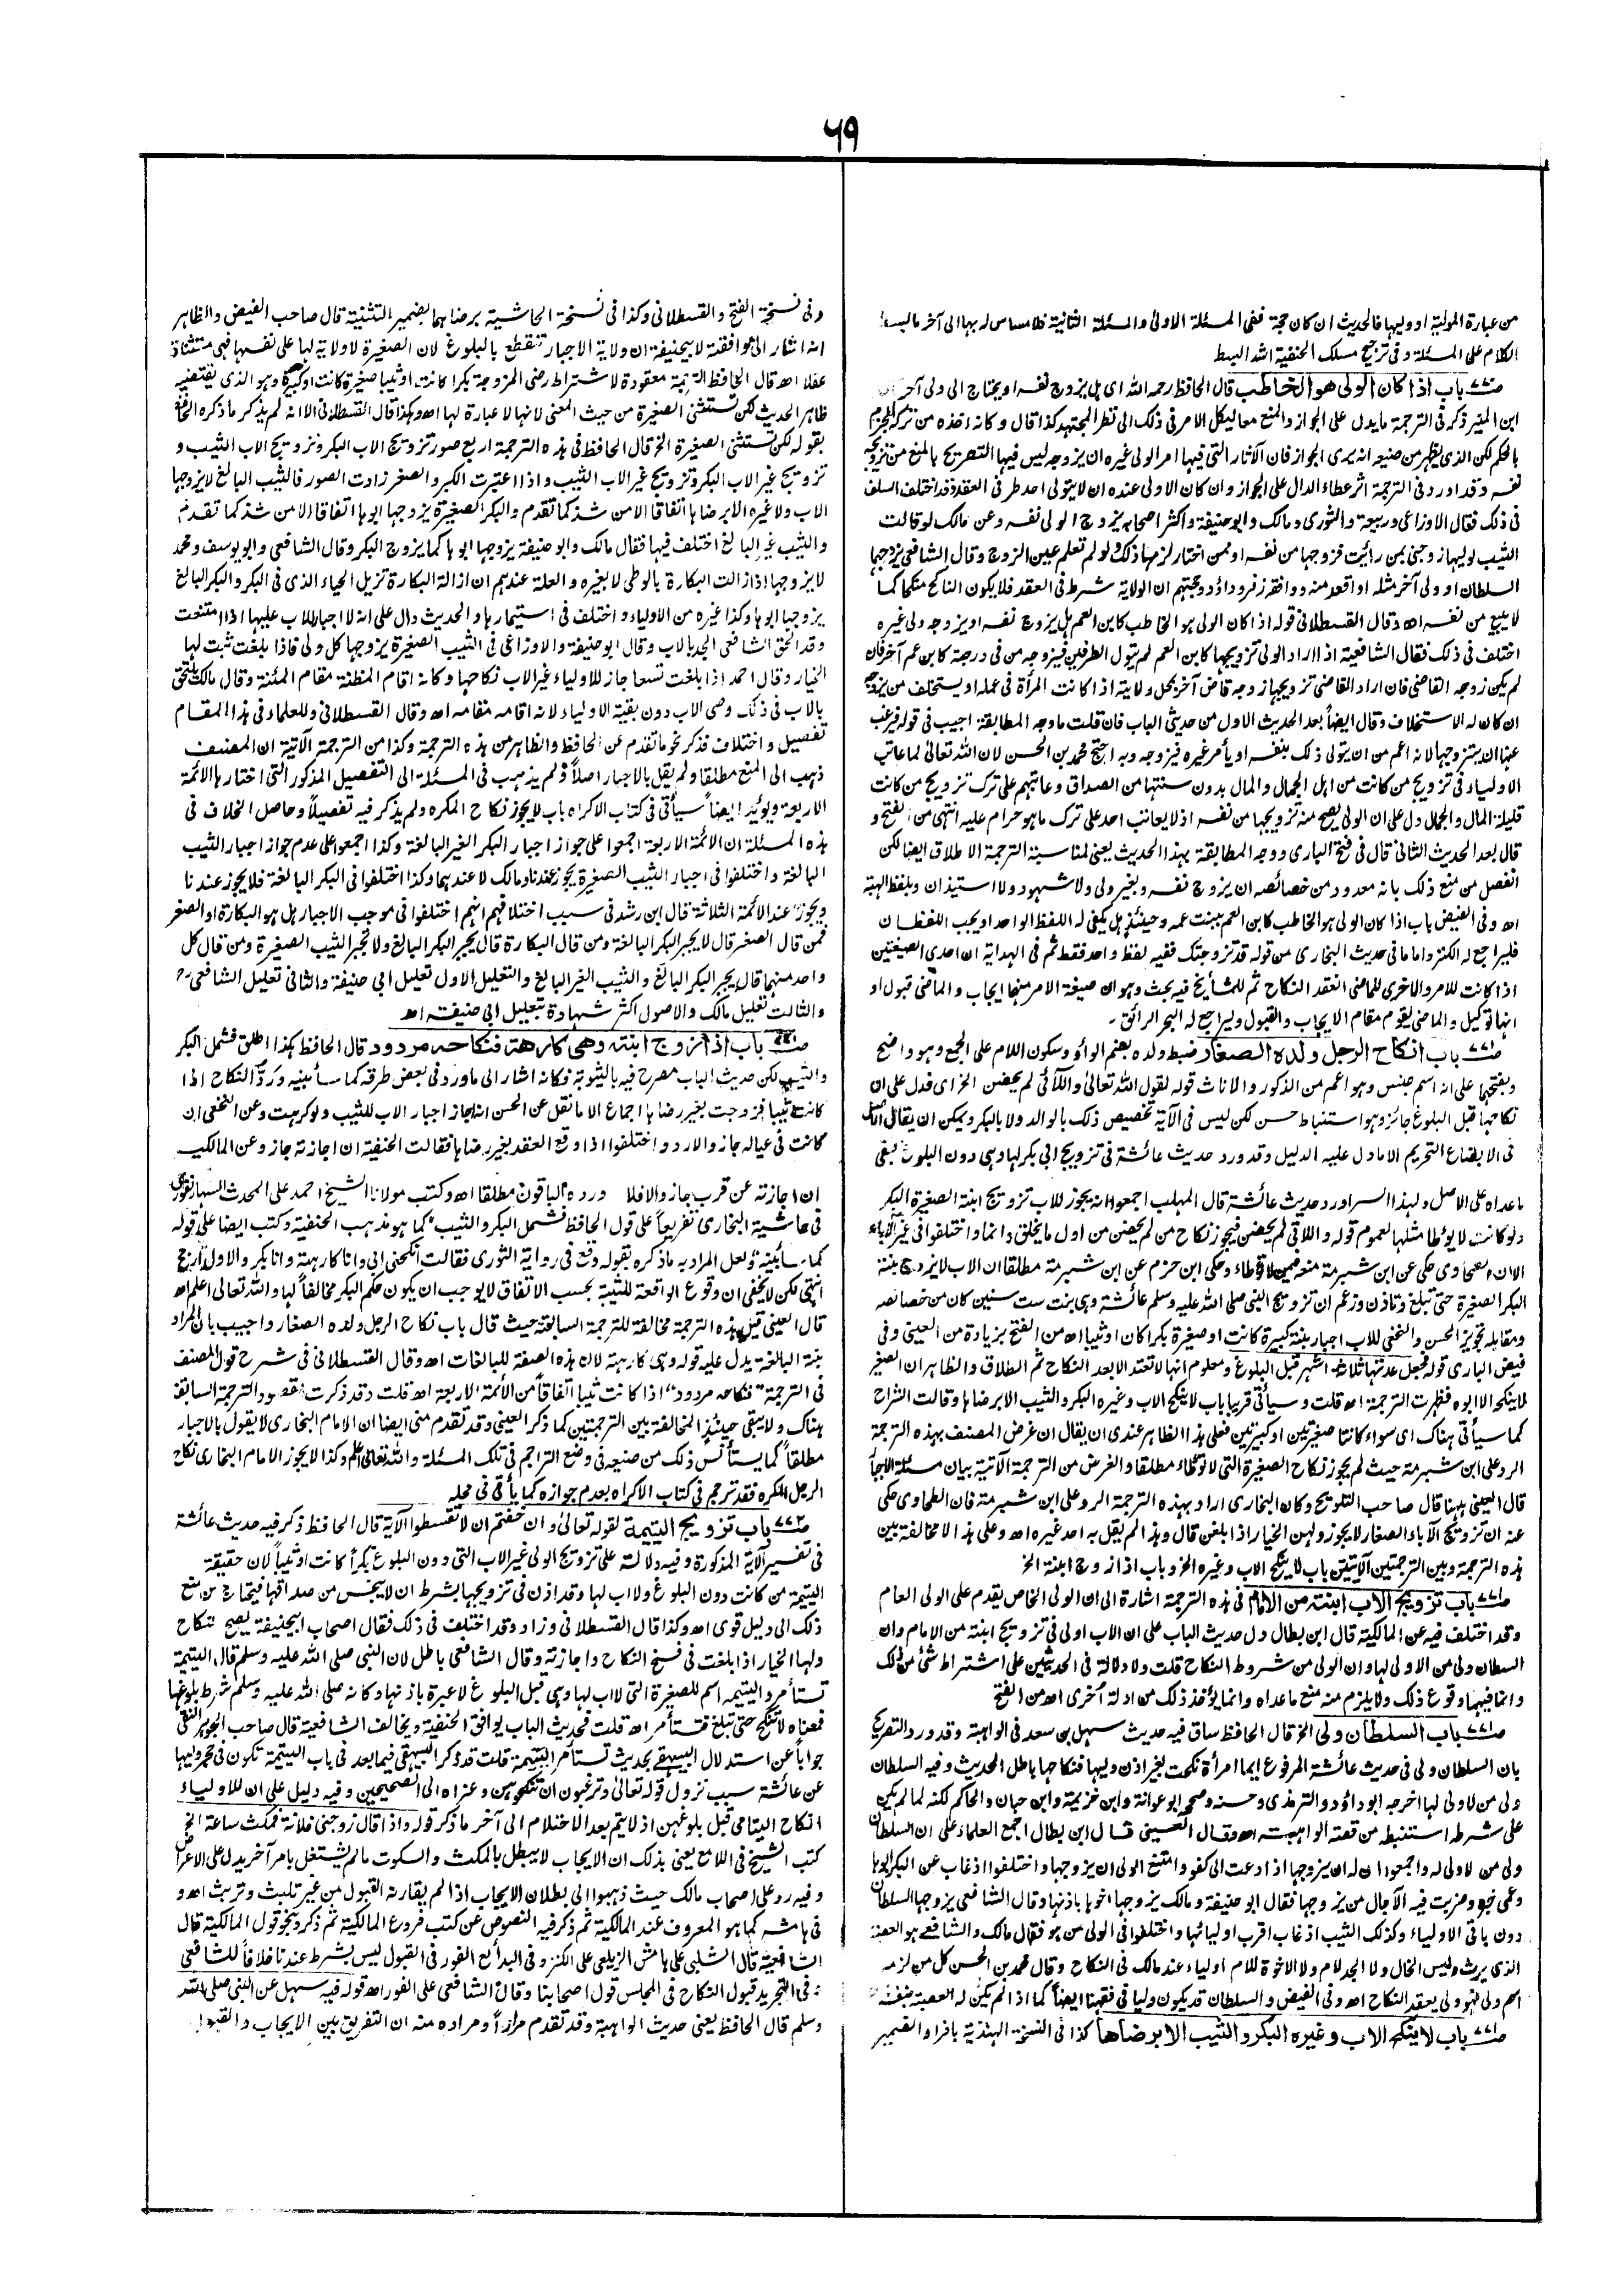 ٦٩
من عبارة المولية او وليها فالحديث ان كان حجة ففى المسئلة الاولى والمسئلة الثانية فلا مساس له بها الى آخر ما بسط
الكلام على المسئلة و فى ترجيح مسلك الحنفية اشد البسط
باب اذا كان الولى هو الخاطب قال الحافظ رحمه الله اى هل يزوج نفسه او يحتاج الى ولى آخر قال
ابن المنير ذكر فى الترجمة ما يدل على الجواز والمنع معا ليكل الامر فى ذلك الى نظر المجتهد كذا قال و كانه اخذه من تركه الجزم
بالحكم لكن الذى يظهر من صنيعه انه يرى الجواز فان الآثار التى فيها امر الولى غيره ان يزوجه ليس فيها التصريح بالمنع من تزويجه
نفسه وقد اورد فى الترجمة اثر عطاء الدال على الجواز وان كان الاولى عنده ان لا يتولى احد طرفى العقد وقد اختلف السلف
فى ذلك فقال الاوزاعى وربيعة والثورى ومالك وابو حنيفة واكثر اصحابه يزوج الولى نفسه وعن مالك لو قالت
الثيب لوليها زوجنى بمن رأيت فزوجها من نفسه او ممن اختار لزمها ذلك ولو لم تعلم عين الزوج وقال الشافعى يزوجها
السلطان او ولى آخر مثله او اقعد منه ووافقه زفر وداؤد وحجتهم ان الولاية شرط فى العقد فلا يكون الناكح منكحا كما
لا يبيع من نفسه اه وقال القسطلانى قوله اذا كان الولى هو الخاطب كابن العم هل يزوج نفسه او يزوجه ولى غيره
اختلف فى ذلك فقال الشافعية اذا اراد الولى تزويجها كابن العم لم يتول الطرفين فيزوجه من فى درجته كابن عم آخر فان
لم يكن زوجه القاضى فان اراد القاضى تزويجها زوجه قاض آخر بمحل ولايته اذا كانت المرأة فى عمله او يستخلف من يزوجه
ان كان له الاستخلاف وقال ايضا بعد الحديث الاول من حديثى الباب فان قلت ما وجه المطابقة اجيب فى قوله فيرغب
عنها ان يتزوجها لانه اعم من ان يتولى ذلك بنفسه او يأمر غيره فيزوجه وبه احتج محمد بن الحسن لان الله تعالى لما عاتب
الاولياء فى تزويج من كانت من اهل الجمال والمال بدون سنتها من الصداق وعاتبهم على ترك تزويج من كانت
قليلة المال والجمال دل على ان الولى يصح منه تزويجها من نفسه اذ لا يعاتب احد على ترك ما هو حرام عليه انتهى من الفتح و
قال بعد الحديث الثانى قال فى فتح البارى ووجه المطابقة بهذا الحديث يعنى لمناسبة الترجمة الاطلاق ايضا لكن
انفصل من منع ذلك بانه معدود من خصائصه ان يزوج نفسه وبغير ولى ولا شهود ولا استيذان وبلفظ الهبة
اه وفى الفيض باب اذا كان الولى هو الخاطب كابن العم ببنت عمه وحينئذ هل يكفى له اللفظ الواحد او يجب اللفظان
فليراجع له الكنز واما ما فى حديث البخارى من قوله قد تزوجتك ففيه لفظ واحد فقط ثم فى الهداية ان احدى الصيغتين
اذا كانت للامر والاخرى للماضى انعقد النكاح ثم للمشايخ فيه بحث وهو ان صيغة الامر منها ايجاب والماضى قبول او
انها توكيل والماضى يقوم مقام الايجاب والقبول وليراجع له البحر الرائق ۔
باب انكاح الرجل ولده الصغار ضبط ولده بضم الواؤ وسكون اللام على الجمع وهو واضح
وبفتحها على انه اسم جنس وهو اعم من الذكور والاناث قوله لقول الله تعالى واللآئى لم يحضن الخ اى فدل على ان
نكاحها قبل البلوغ جائز وهو استنباط حسن لكن ليس فى الآية تخصيص ذلك بالوالد ولا بالبكر ويمكن ان يقال الاصل
فى الابضاع التحريم الا ما دل عليه الدليل وقد ورد حديث عائشة فى تزويج ابى بكر لها وهى دون البلوغ فبقى
ما عداه على الاصل ولهذا السر اورد حديث عائشة قال المهلب اجمعوا انه يجوز للاب تزويج ابنته الصغيرة البكر
ولو كانت لا يوطأ مثلها لعموم قوله واللائى لم يحضن فيجوز نكاح من لم يحضن من اول ما يخلقن وانما اختلفوا فى غير الآباء
الا ان الطحاوى حكى عن ابن شبرمة منعه فيمن لا توطأ وحكى ابن حزم عن ابن شبرمة مطلقا ان الاب لا يزوج بنته
البكر الصغيرة حتى تبلغ وتاذن وزعم ان تزويج النبى صلى الله عليه وسلم عائشة وهى بنت ست سنين كان من خصائصه
ومقابله تجويز الحسن والنخعى للاب اجبار بنته كبيرة كانت او صغيرة بكرا كان او ثيبا اه من الفتح بزيادة من العينى وفى
فيض البارى قوله فجعل عدتها ثلاثة اشهر قبل البلوغ ومعلوم انها لا تعتد الا بعد النكاح ثم الطلاق والظاهر ان الصغير
لما ينكحه الا ابوه فظهرت الترجمة اه قلت وسيأتى قريبا باب لا ينكح الاب وغيره البكر والثيب الا برضاها وقالت الشراح
كما سيأتى هناك اى سواء كانتا صغيرتين او كبيرتين فعلى هذا الظاهر عندى ان يقال ان غرض المصنف بهذه الترجمة
الرد على ابن شبرمة حيث لم يجوز نكاح الصغيرة التى لا توطأ مطلقا والغرض من الترجمة الآتية بيان مسئلة الاجبار
قال العينى ههنا قال صاحب التلويح وكان البخارى اراد بهذه الترجمة الرد على ابن شبرمة فان الطحاوى حكى
عنه ان تزويج الآباء الصغار لا يجوز ولهن الخيار اذا بلغن قال وهذا لم يقل به احد غيره اه وعلى هذا لا مخالفة بين
هذه الترجمة وبين الترجمتين الآتيتين باب لا ينكح الاب وغيره الخ وباب اذا زوج ابنته الخ
باب تزويج الاب ابنته من الامام فى هذه الترجمة اشارة الى ان الولى الخاص يقدم على الولى العام
وقد اختلف فيه عن المالكية قال ابن بطال دل حديث الباب على ان الاب اولى فى تزويج ابنته من الامام وان
السلطان ولى من لا ولى لها وان الولى من شروط النكاح قلت ولا دلالة فى الحديثين على اشتراط شئ من ذلك
وانما فيهما وقوع ذلك ولا يلزم منه منع ما عداه وانما يؤخذ ذلك من ادلة اخرى اه من الفتح
باب السلطان ولى الخ قال الحافظ ساق فيه حديث سهل بن سعد فى الواهبة وقد ورد التصريح
بان السلطان ولى فى حديث عائشة المرفوع ايما امرأة نكحت بغير اذن وليها فنكاحها باطل الحديث وفيه السلطان
ولى من لا ولى لها اخرجه ابو داؤد والترمذى وحسنه وصححه ابو عوانة وابن خزيمة وابن حبان والحاكم لكنه لما لم يكن
على شرطه استنبطه من قصة الواهبة اه وقال العينى قال ابن بطال اجمع العلماء على ان السلطان
ولى من لا ولى له واجمعوا ان له ان يزوجها اذا دعت الى كفو وامتنع الولى ان يزوجها واختلفوا اذا غاب عن البكر ابوها
وعمى خبره وضربت فيه الآجال من يزوجها فقال ابو حنيفة ومالك يزوجها اخوها باذنها وقال الشافعى يزوجها السلطان
دون باقى الاولياء وكذلك الثيب اذا غاب اقرب اوليائها واختلفوا فى الولى من هو فقال مالك والشافعى هو العصبة
الذى يرث وليس الخال ولا الجد لام ولا الاخوة للام اولياء عند مالك فى النكاح وقال محمد بن الحسن كل من لزمه
اسم ولى فهو ولى يعقد النكاح اه وفى الفيض والسلطان قد يكون وليا فى فقهنا ايضا كما اذا لم يكن له العصبة بنفسه
باب لا ينكح الاب وغيره البكر والثيب الا برضاها كذا فى النسخة الهندية بافراد الضمير
وفى نسخة الفتح والقسطلانى وكذا فى نسخة الحاشية برضاهما بضمير التثنية قال صاحب الفيض والظاهر
انه اشار الى موافقته لابيحنيفة ان ولاية الاجبار تنقطع بالبلوغ لان الصغيرة لا ولاية لها على نفسها فهى مستثناة
عقلا اه قال الحافظ الترجمة معقودة لاشتراط رضى المزوجة بكرا كانت او ثيبا صغيرة كانت او كبيرة وهو الذى يقتضيه
ظاهر الحديث لكن تستثنى الصغيرة من حيث المعنى لانها لا عبارة لها اه وهكذا قال القسطلانى الا انه لم يذكر ما ذكره الحافظ
بقوله لكن تستثنى الصغيرة الخ قال الحافظ فى هذه الترجمة اربع صور تزويج الاب البكر وتزويج الاب الثيب و
تزويج غير الاب البكر وتزويج غير الاب الثيب واذا اعتبرت الكبر والصغر زادت الصور فالثيب البالغ لا يزوجها
الاب ولا غيره الا برضاها اتفاقا الا من شذ كما تقدم والبكر الصغيرة يزوجها ابوها اتفاقا الا من شذ كما تقدم
والثيب غير البالغ اختلف فيها فقال مالك وابو حنيفة يزوجها ابوها كما يزوج البكر وقال الشافعى وابو يوسف ومحمد
لا يزوجها اذا زالت البكارة بالوطى لا بغيره والعلة عندهم ان ازالة البكارة تزيل الحياء الذى فى البكر والبكر البالغ
يزوجها ابوها وكذا غيره من الاولياء واختلف فى استيمارها والحديث دال على انه لا اجبار للاب عليها اذا امتنعت
وقد الحق الشافعى الجد بالاب وقال ابو حنيفة والاوزاعى فى الثيب الصغيرة يزوجها كل ولى فاذا بلغت ثبت لها
الخيار وقال احمد اذا بلغت تسعا جاز للاولياء غير الاب نكاحها وكانه اقام المظنة مقام المئنة وقال مالك يلتحق
بالاب فى ذلك وصى الاب دون بقية الاولياء لانه اقامه مقامه اه وقال القسطلانى وللعلماء فى هذا المقام
تفصيل واختلاف فذكر نحو ما تقدم عن الحافظ والظاهر من هذه الترجمة وكذا من الترجمة الآتية ان المصنف
ذهب الى المنع مطلقا ولم يقل بالاجبار اصلا ولم يذهب فى المسئلة الى التفصيل المذكور التى اختارها الائمة
الاربعة ويؤيده ايضا سيأتى فى كتاب الاكراه باب لا يجوز نكاح المكره ولم يذكر فيه تفصيلا وحاصل الخلاف فى
هذه المسئلة ان الائمة الاربعة اجمعوا على جواز اجبار البكر الغير البالغة وكذا اجمعوا على عدم جواز اجبار الثيب
البالغة واختلفوا فى اجبار الثيب الصغيرة يجوز عندنا ومالك لا عندهما وكذا اختلفوا فى البكر البالغة فلا يجوز عندنا
ويجوز عند الائمة الثلاثة قال ابن رشد فى سبب اختلافهم انهم اختلفوا فى موجب الاجبار هل هو البكارة او الصغر
فمن قال الصغر قال لا يجبر البكر البالغة ومن قال البكارة قال يجبر البكر البالغ ولا تجبر الثيب الصغيرة ومن قال كل
واحد منهما قال يجبر البكر البالغ والثيب الغير البالغ والتعليل الاول تعليل ابى حنيفة والثانى تعليل الشافعى رح
والثالث تعليل مالك والاصول اكثر شهادة بتعليل ابى حنيفة اه
باب اذا زوج ابنته وهى كارهة فنكاحه مردود قال الحافظ هكذا اطلق فشمل البكر
والثيب لكن حديث الباب مصرح فيه بالثيوبة فكانه اشار الى ما ورد فى بعض طرقه كما سأبينه ورد النكاح اذا
كانت ثيبا فزوجت بغير رضاها اجماع الا ما نقل عن الحسن انه اجاز اجبار الاب للثيب ولو كرهت وعن النخعى ان
كانت فى عياله جاز والا رد واختلفوا اذا وقع العقد بغير رضاها فقالت الحنفية ان اجازته جاز وعن المالكية
ان اجازته عن قرب جاز والا فلا ورده الباقون مطلقا اه وكتب مولانا الشيخ احمد على المحدث السهارنفورى
فى حاشية البخارى تفريعا على قول الحافظ فشمل البكر والثيب كما هو مذهب الحنفية وكتب ايضا على قوله
كما سأبينه ولعل المراد به ما ذكره بقوله وقع فى رواية الثورى فقالت انكحنى ابى وانا كارهة وانا بكر والاول ارجح
انتهى لكن لا يخفى ان وقوع الواقعة للثيبة بحسب الاتفاق لا يوجب ان يكون حكم البكر مخالفا لها والله تعالى اعلم اه
قال العينى قيل هذه الترجمة مخالفة للترجمة السابقة حيث قال باب نكاح الرجل ولده الصغار واجيب بان المراد
بنته البالغة يدل عليه قوله وهى كارهة لان هذه الصفة للبالغات اه وقال القسطلانى فى شرح قول المصنف
فى الترجمة "فنكاحه مردود" اذا كانت ثيبا اتفاقا من الائمة الاربعة اه قلت وقد ذكرت مقصود الترجمة السابقة
هناك ولا يبقى حينئذ المخالفة بين الترجمتين كما ذكر العينى وقد تقدم منى ايضا ان الامام البخارى لا يقول بالاجبار
مطلقا كما يستأنس ذلك من صنيعه فى وضع التراجم فى تلك المسئلة والله تعالى اعلم وكذا لا يجوز الامام البخارى نكاح
الرجل المكره فقد ترجم فى كتاب الاكراه بعدم جوازه كما يأتى فى محله
باب تزويج اليتيمة لقوله تعالى وان خفتم ان لا تقسطوا الآية قال الحافظ ذكر فيه حديث عائشة
فى تفسير الآية المذكورة وفيه دلالة على تزويج الولى غير الاب التى دون البلوغ بكرا كانت او ثيبا لان حقيقة
اليتيمة من كانت دون البلوغ ولا اب لها وقد اذن فى تزويجها بشرط ان لا يبخس من صداقها فيحتاج من منع
ذلك الى دليل قوى اه وكذا قال القسطلانى وزاد وقد اختلف فى ذلك فقال اصحاب ابيحنيفة يصح النكاح
ولها الخيار اذا بلغت فى فسخ النكاح واجازته وقال الشافعى باطل لان النبى صلى الله عليه وسلم قال اليتيمة
تستأمر واليتيمة اسم للصغيرة التى لا اب لها وهى قبل البلوغ لا عبرة باذنها وكانه صلى الله عليه وسلم شرط بلوغها
فمعناه لا تنكح حتى تبلغ فتستأمر اه قلت فحديث الباب يوافق الحنفية ويخالف الشافعية قال صاحب الجوهر النقى
جوابا عن استدلال البيهقى بحديث تستأمر اليتيمة قلت قد ذكر البيهقى فيما بعد فى باب اليتيمة تكون فى حجر وليها
عن عائشة سبب نزول قوله تعالى وترغبون ان تنكحوهن وعزاه الى الصحيحين وفيه دليل على ان للاولياء
انكاح اليتامى قبل بلوغهن اذ لا يتم بعد الاحتلام الى آخر ما ذكر قوله واذا قال زوجنى فلانة فمكث ساعة الخ
كتب الشيخ فى اللامع يعنى بذلك ان الايجاب لا يبطل بالمكث والسكوت ما لم يشتغل بامر آخر يدل على الاعراض
وفيه رد على اصحاب مالك حيث ذهبوا الى بطلان الايجاب اذا لم يقارنه القبول من غير تلبث وتريث اه و
فى هامشه كما هو المعروف عند المالكية ثم ذكر فيه النصوص عن كتب فروع المالكية ثم ذكر وبنحو قول المالكية قال
الشافعية قال الشلبى على هامش الزيلعى على الكنز وفى البدائع الفور فى القبول ليس بشرط عندنا خلافا للشافعى
وفى التجريد قبول النكاح فى المجلس قول اصحابنا وقال الشافعى على الفور اه قوله فيه سهل عن النبى صلى الله عليه
وسلم قال الحافظ يعنى حديث الواهبة وقد تقدم مرارا ومراده منه ان التفريق بين الايجاب والقبول